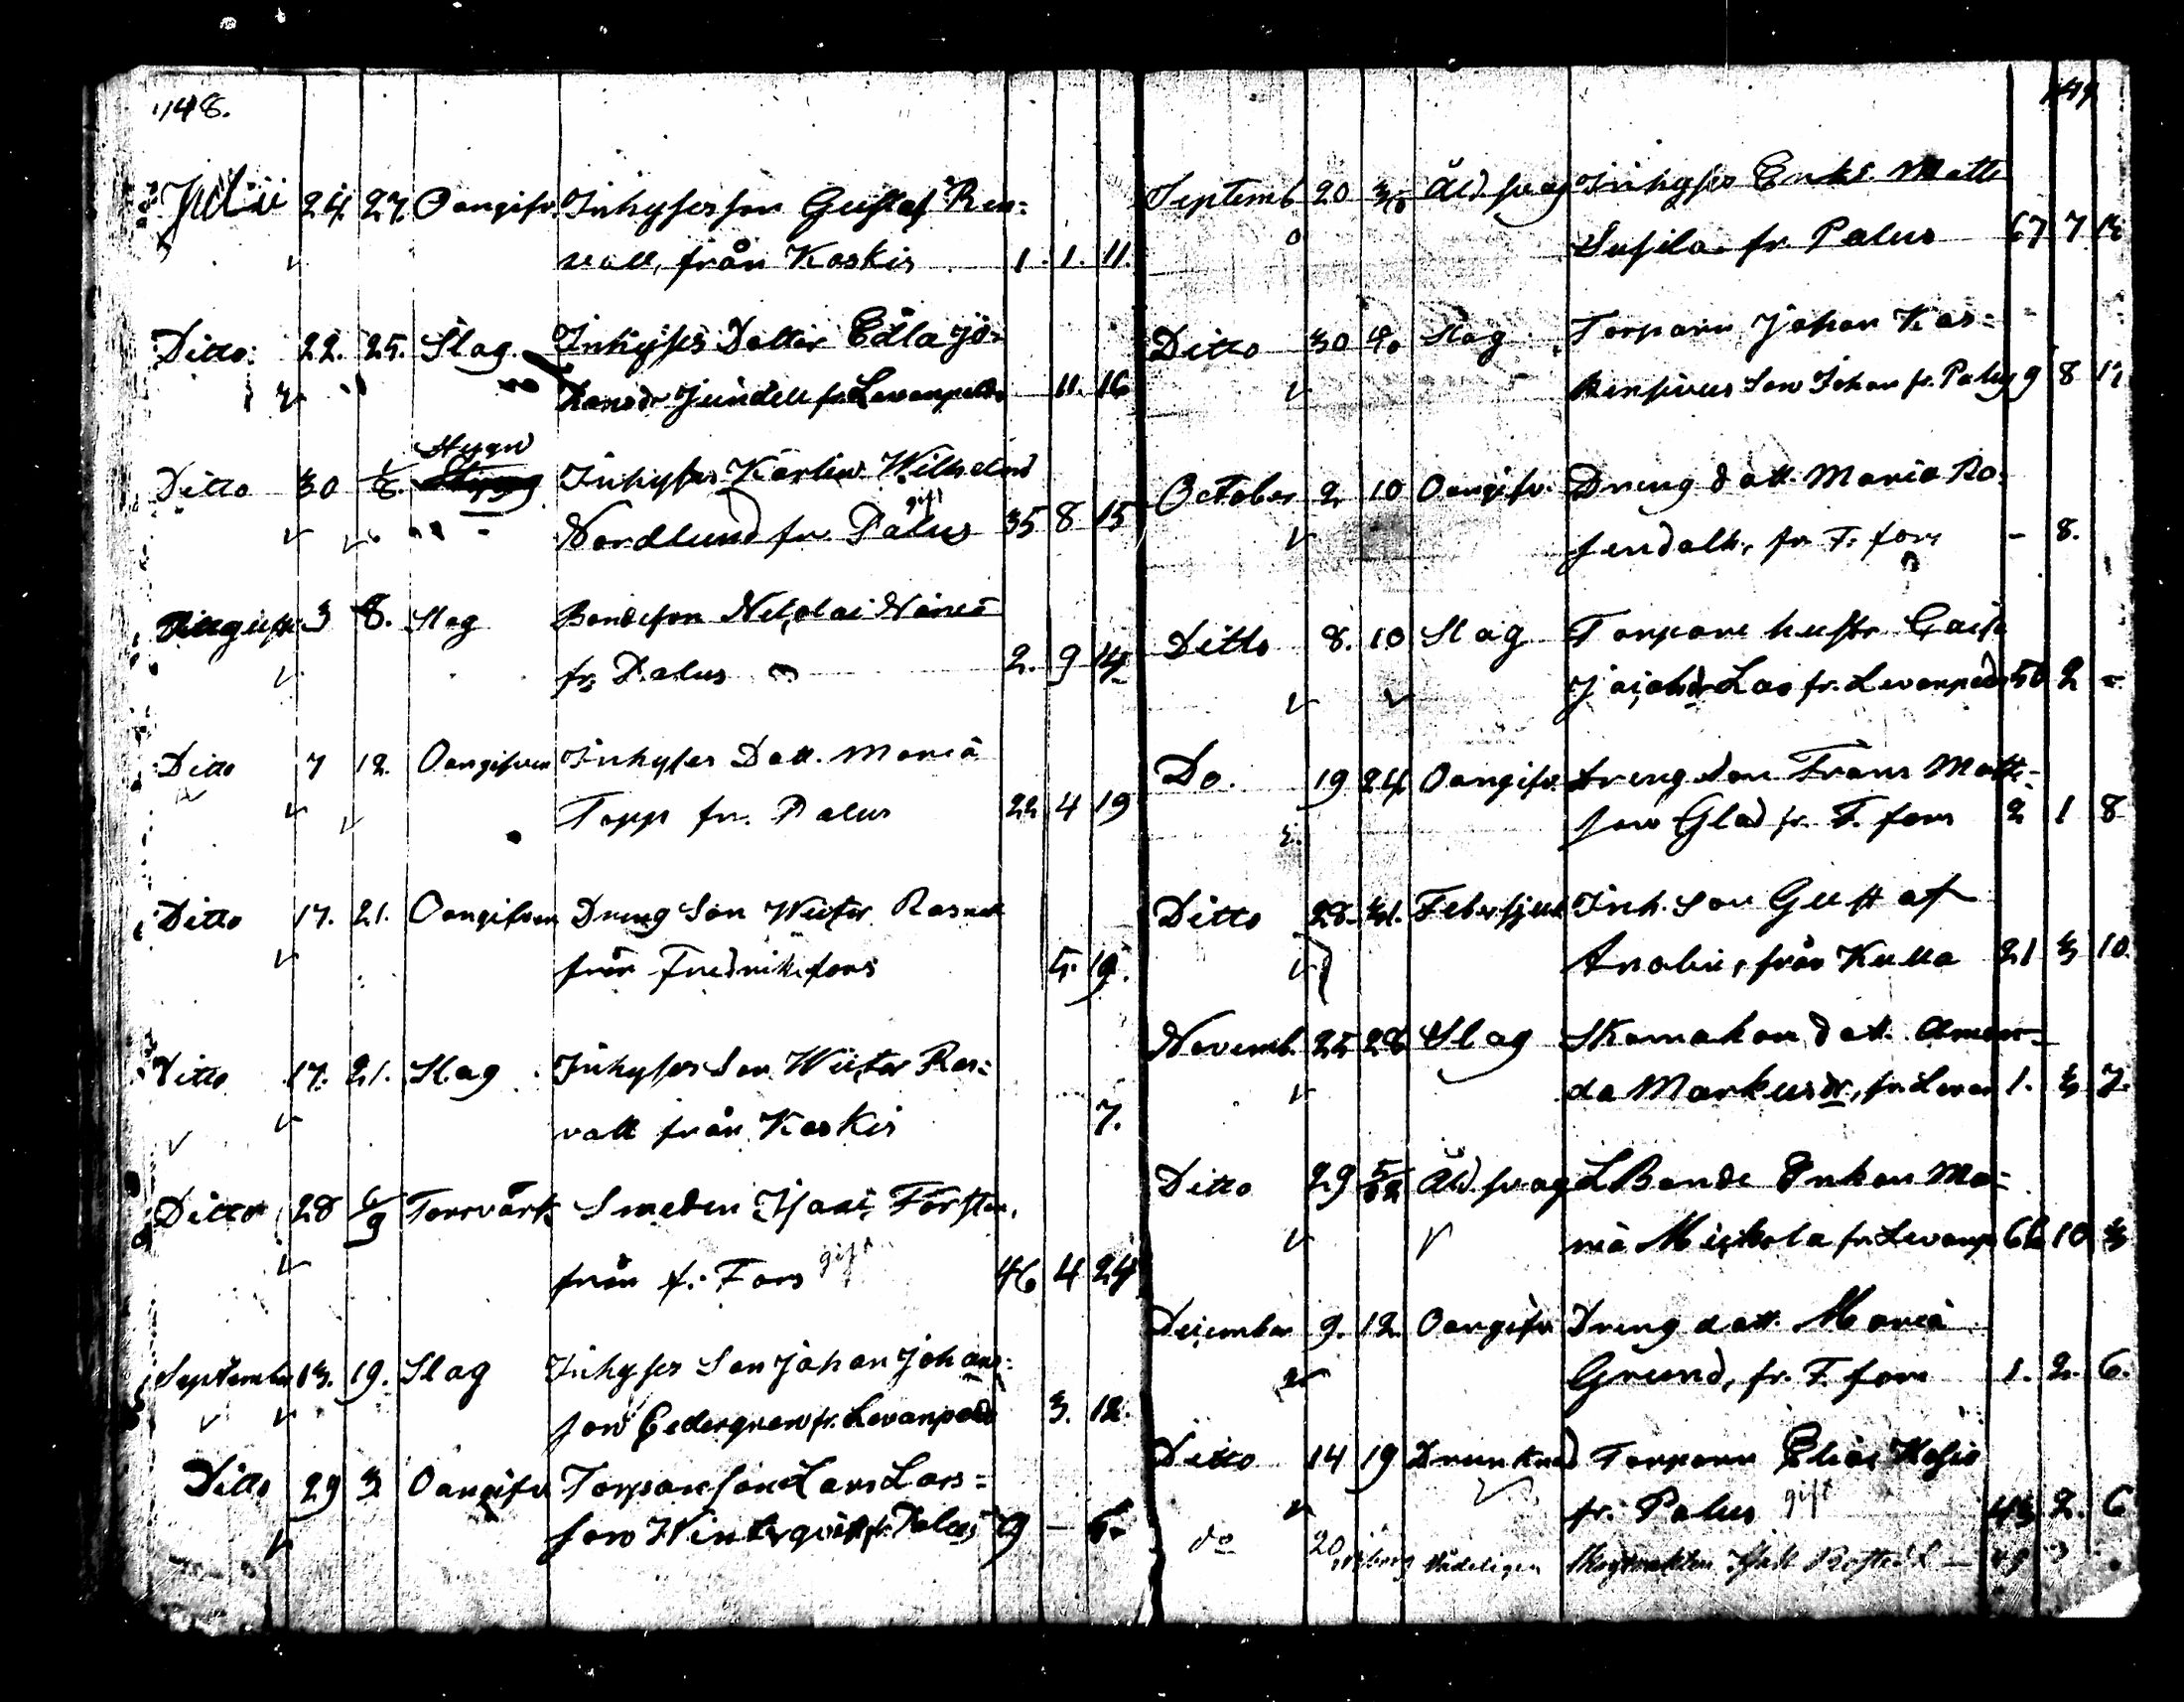 148.
Julii 24. 27. Oangifv. Inhyses son Gustaf Ren=
vall, från Koskis 1. 1. 11.
Ditto 22. 25. Slag Inhyses Dotter Edla Jo=
hansdr Jündell fr. Levanpelto 11. 16
Ditto 30 1/8. Stygn Inhyses Karlen Wilhelm
Nordlund fr. Palus gift 35 8 15
3 8. Slag Bondeson Nikolai
fr. Palus 2. 9 14
Ditto 7 12. Oangifven Inhyses Dott. Maria
Topp fr. Palus 22 4 19
Ditto 17. 21. Oangifven Dreng Son Victor
från Fredriksfors 5. 19.
Ditto 17. 21. Slag Inhyses Son Victor Ren=
vall från Koskis 7.
Ditto 28 6/9 Torrvärk Smeden Isaac Forsten,
från f. Fors gift 46 4 24
September 13. 19. Slag Inhyses Son Johan Johans=
son Cedergren fr. Levanpelto 3. 12.
Ditto 29 3 Oangifv Torpare son Lars Lars=
son Winterqvist fr. Palus 9 -
149
Septemb 20 30 Åld.svag Inhyses Enka Matts
fr. Palus 67 7 12
Ditto 30 Slag Torparen Johan Kas=
Son Johan fr. Palus 9 8 12
October 2 10 Oangifv. Dreng dott. Maria Ro=
sendahl, fr. F. fors - 8.
Ditto 8. 10 Slag Torpare hustr Caisa
Lao fr. Levanpelto 50 2 -
Do. 19 24 Oangifv. dreng son Frans Matts=
son Glad fr. F. fors 2 1 8
Ditto 28. 31. Febersjuk Inh. son Gustaf
från Kulla 21 3 10.
Novemb. 25 28 Slag Skomakare dott. Aman=
da Markusdr, fr. Levan 1. 3 7.
Ditto 29 5/12 Åld.svag L Bonde Enkan Ma=
ria Mickola fr. Levanp 66 10 3
December 9. 12. Oangifv Dreng dott. Maria
Grund, fr. F. fors 1. 2. 6.
Ditto 14 19 Drunknad Torparen Elias
fr. Palus gift 43 2. 6
do 20 Vådeligen